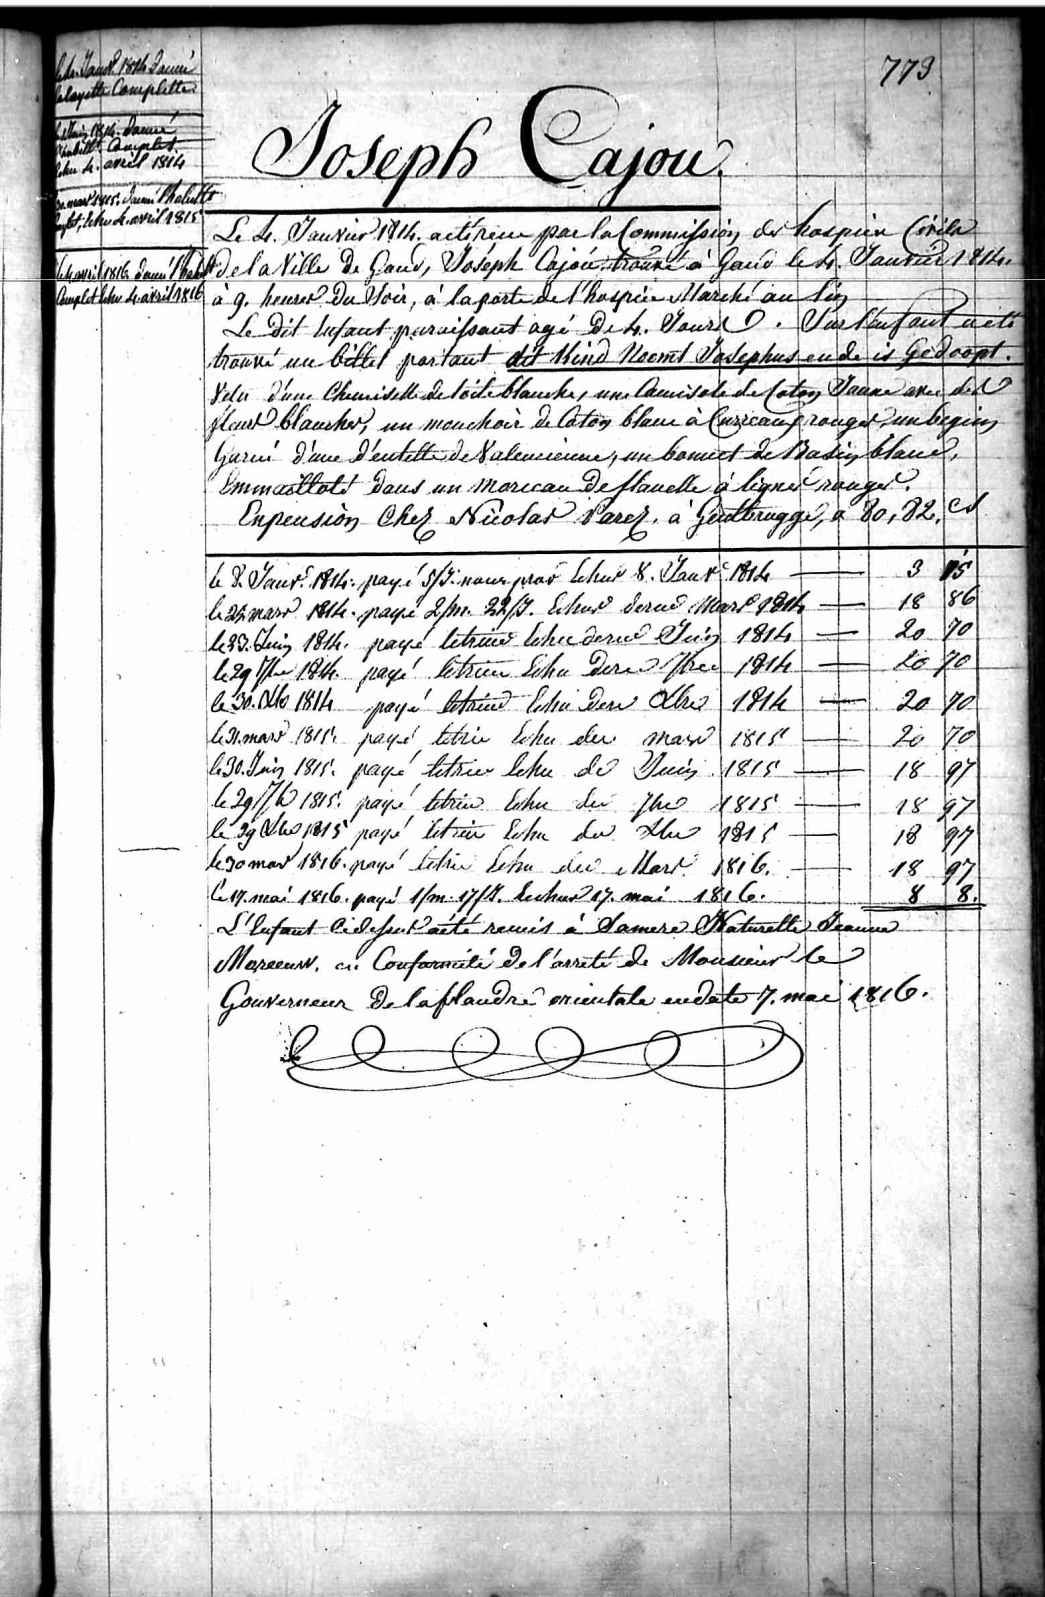 773
le 4. Janv.r 1814 donné
la layette Complette
Joseph Cajou.
1814. donné
l'habill.t Complet.
échu 4. avril 1814
mars 1815. donné l'habill.t
Complet, échu 4. avril 1815
le 4 avril 1816 donné l'habill.t
Complet échu 4 avril 1816
Le 4. Janvier 1814. a été reçu par la Commission des hospices Civils
de la Ville de Gand, Joseph Cajou trouvé à Gand le 4. Janvier 1814.
à 9. heures du Soir, à la porte de l'hospice Marché au lin
Le dit Enfant paraissant agé de 4. Jours. Sur l'enfant a été
trouvé un billet portant dit Kind Noemt Josephus ende is Gedoopt.
Vetu d'une Chemisette de toile blanche, une Camisole de Coton Jaune avec des
fleurs blanches, un mouchoir de Coton blanc à Carreaux rouges, un beguin
Garni d'une dentelle de Valencienne, un bonnet de Basin blanc,
Emmailloté dans un morceau de flanelle à lignes rouges.
En pension Chez Nicolas Parez. à Gentbrugge, a 80, 82. Cs
le 8. Janv.r 1814. payé 5/J. nour. prov échus 8. Janv.r 1814 — 3 15
le 24 mars 1814. payé 2/m. 22/J. Echus dernr Mars 1814 — 18 86
le 23. Juin 1814. payé letrime Echu dernr Juin 1814 — 20 70
le 29 7bre 1814. payé letrime Echu dernr 7bre 1814 — 20 70
le 30. Xbre 1814 payé letrime Echu dernr Xbre 1814 — 20 70
le 31. mars 1815. payé letrim Echu der mars 1815 — 20 70
le 30. Juin 1815. payé letrim Echu der Juin 1815 — 18 97
le 29 7bre 1815. payé letrim Echu der 7bre 1815 — 18 97
le 29 Xbre 1815 payé letrim Echu der Xbre 1815 — 18 97
le 30 mars 1816. payé letrim Echu der Mars 1816. — 18 97
le 17. mai 1816. payé 1/m. 17/J. Echus 17. mai 1816. 8 8.
L'Enfant Cidessus a été remis à Samere Naturelle Jeanne
en Conformité de l'arrété de Monsieur le
Gouverneur de la flandre orientale en date 7. mai 1816.